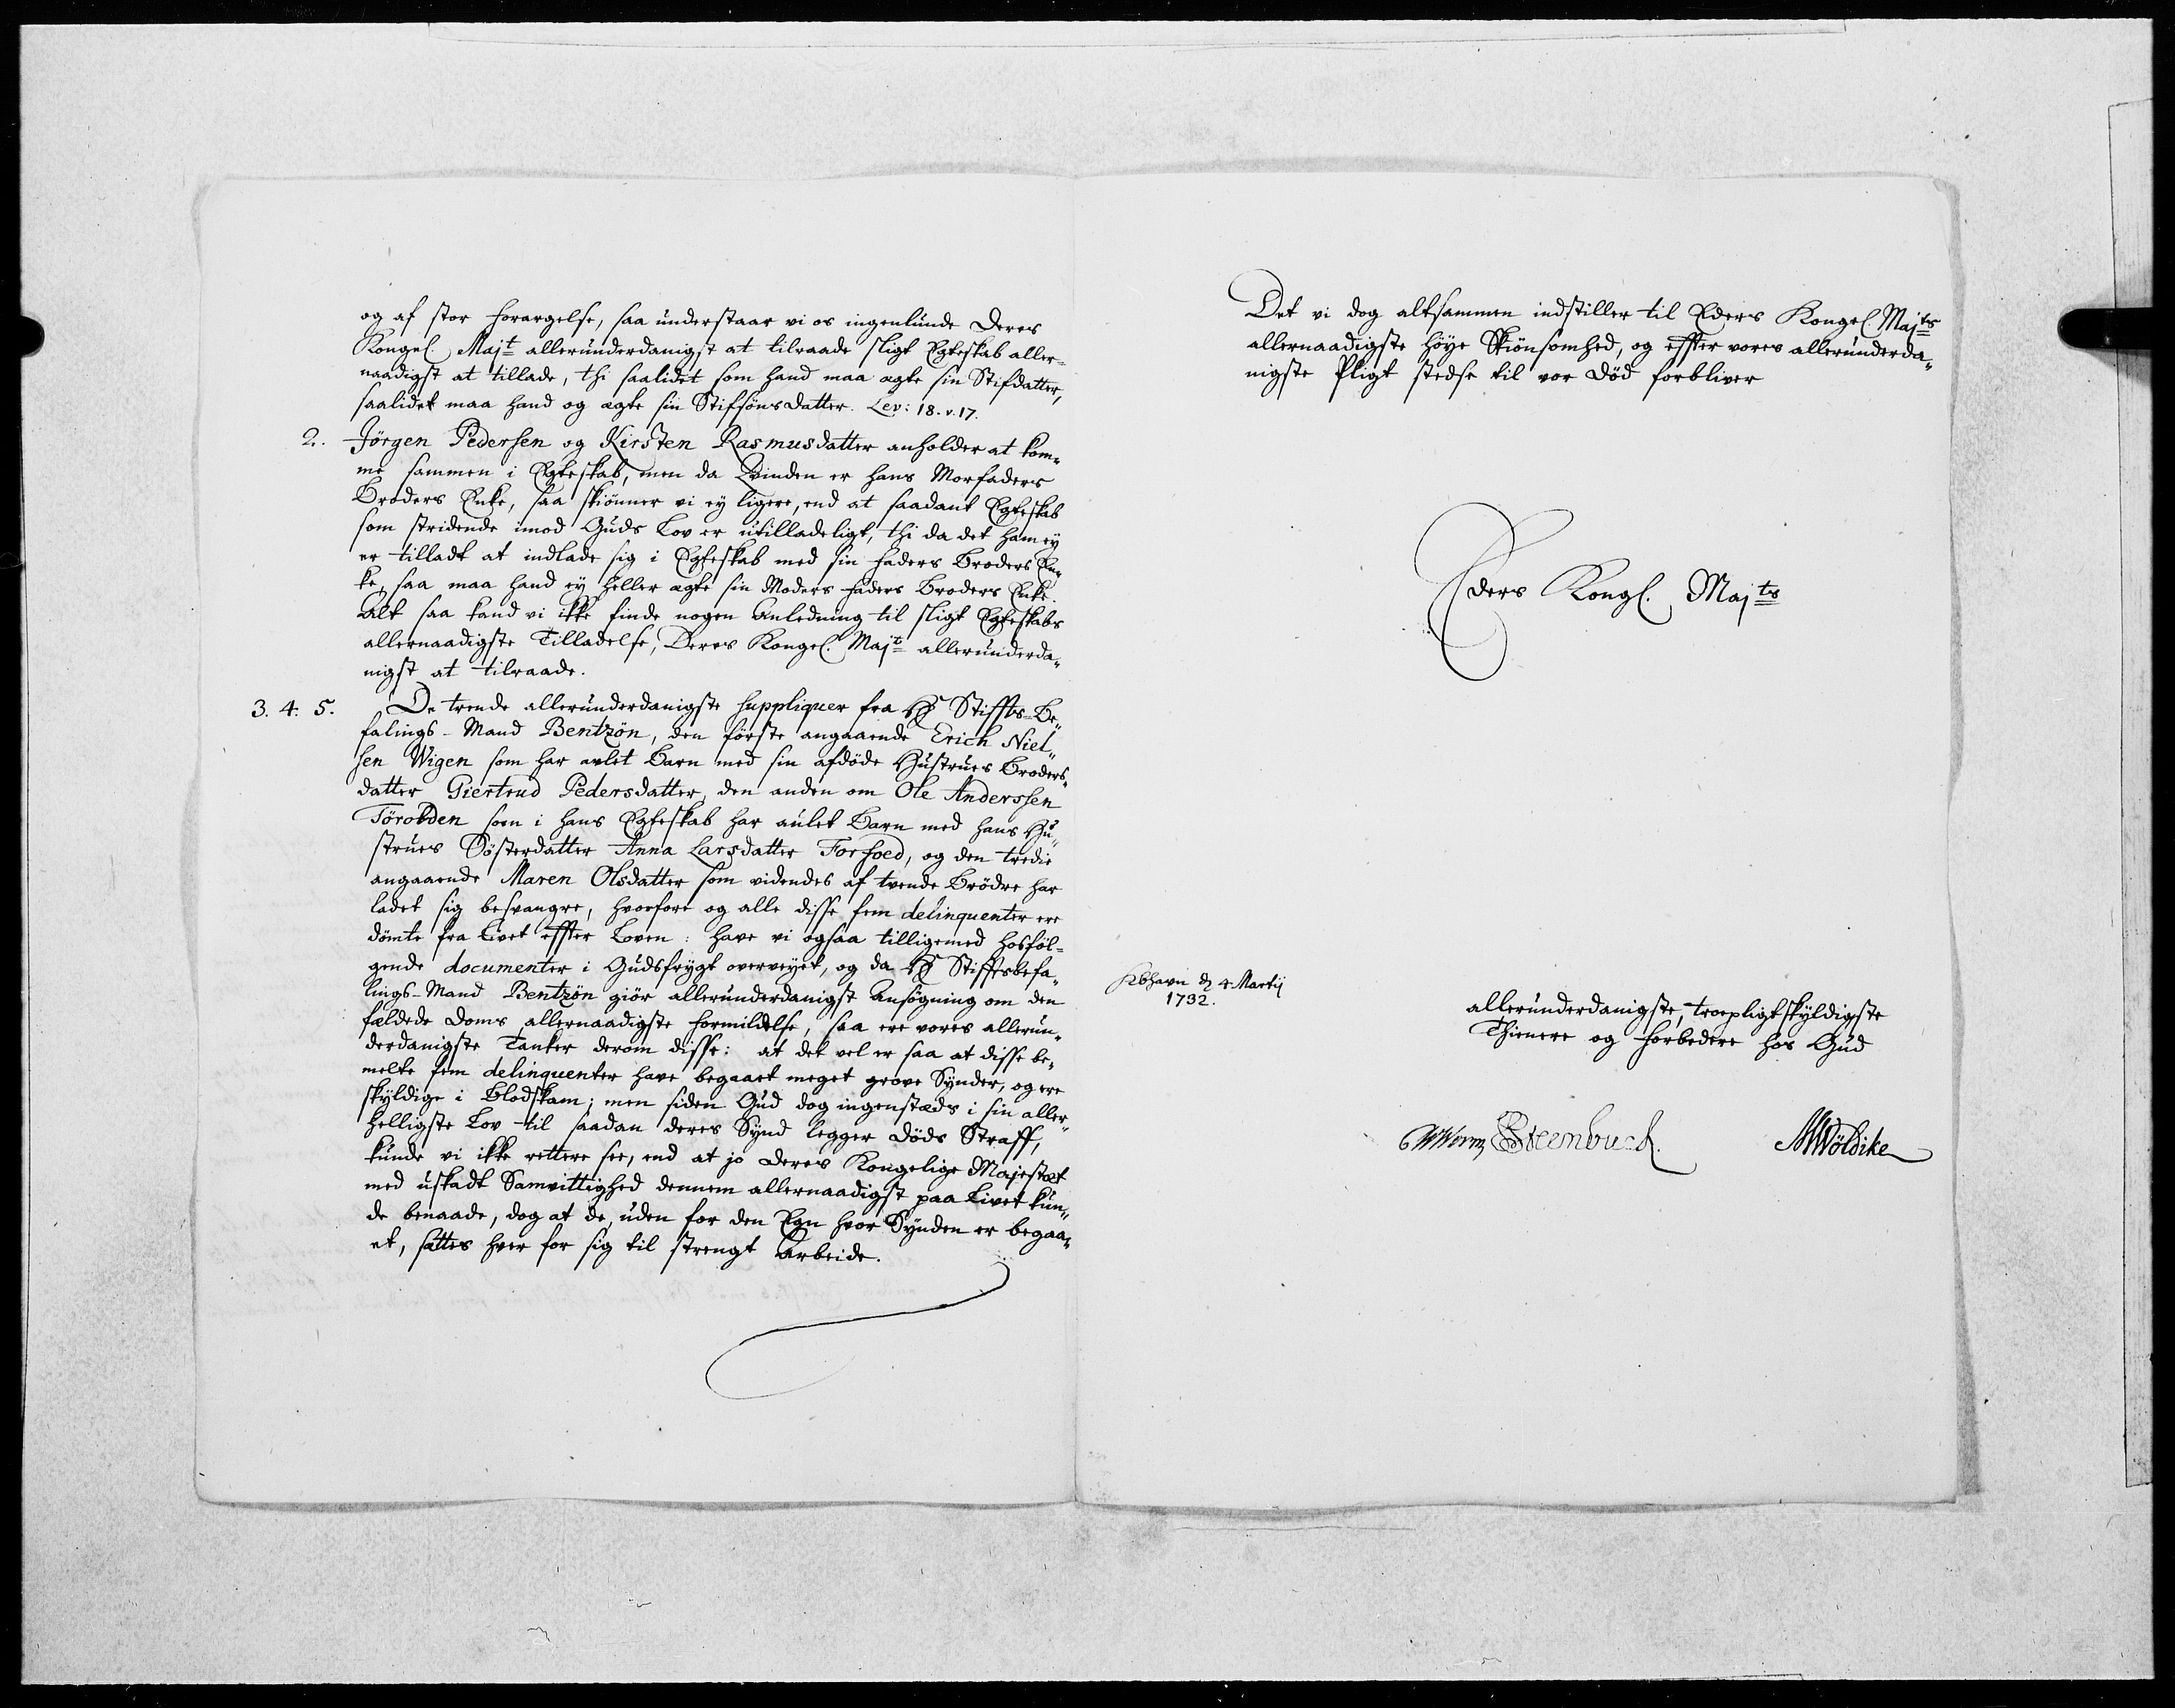 og af stor Forargelse, saa understaar vi os ingenlunde Deres
Kongel. Majt allerunderdanigst at tilraade sligt Egteskab aller-
naadigst at tillade, thi saalidet som hand maa ægte sin Stifdatter,
saalidet maa hand og ægte sin Stifsöns Datter. Lev: 18. v. 17.
2. Jörgen Pedersen og Kirsten Rasmusdatter anholder at kom-
me sammen i Egteskab, men da Qvinden er hans Morfaders
Broders Enke, saa skiönner vi ey ligere, end at saadant Egteskab
som stridende imod Guds Lov er utilladeligt, thi da det ham ey
er tilladt at indlade sig i Egteskab med sin Faders Broders En-
ke, saa maa hand ey heller ægte sin Moders Faders Broders Enke.
Alt saa kand vi ikke finde nogen Anledning til sligt Egteskabs
allernaadigste Tilladelse, Deres Kongel. Majt allerunderda-
nigst at tilraade.
3. 4. 5. De trende allerunderdanigste suppliquer fra Hr Stiffts-Be-
falings-Mand Bentzön, den förste angaaende Erich Niel-
sen Wigen som har avlet Barn med sin afdöde Hustrues Broders-
datter Giertrud Pedersdatter, den anden om Ole Anderssen
Törobden som i hans Egteskab har aulet Barn med hans Hu-
strues Sösterdatter Anna Larsdatter Torfoed, og den tredie
angaaende Maren Olsdatter som videndes af tvende Brödre har
ladet sig besvangre, hvorfore og alle disse fem delinquenter ere
dömte fra Livet effter Loven: have vi ogsaa tilligemed hosföl-
gende documenter i Gudsfrygt overveyet, og da Hr Stifftsbefa-
lings-Mand Bentzön giör allerunderdanigst Ansögning om den
fældede Doms allernaadigste Formildelse, saa ere vores allerun-
derdanigste Tanker derom disse: at det vel er saa at disse be-
melte fem delinquenter have begaaet meget grove Synder, og ere
skyldige i Blodskam; men siden Gud dog ingenstæds i sin aller-
helligste Lov til saadan deres Synd legger Döds Straff,
kunde vi ikke rettere see, end at jo Deres Kongelige Majestæt
med uskadt Samvittighed dennem allernaadigst paa Livet kun-
de benaade, dog at de, uden for den Egn hvor Synden er begaa-
et, sættes hver for sig til strengt Arbeide.
Det vi dog altsammen indstiller til Eders Kongel. Majts
allernaadigste höye Skiönsomhed, og effter vores allerunderda-
nigste Pligt stedse til vor Död forbliver
Eders Kongl. Majts
Kbhavn d. 4 Martij
1732.
allerunderdanigste, troepligtskyldigste
Thienere og Forbedere hos Gud
CWorm Steenbuch. MWöldike